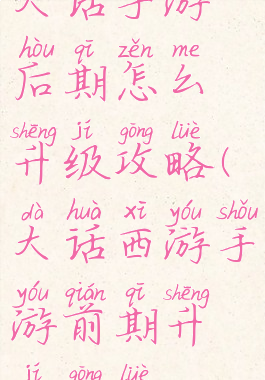 大话手游
hòu qī zěn me
后期怎么
shēng jí gōng lüè
升级攻略(
dà huà xī yóu shǒu
大话西游手
yóu qián qī shēng
游前期升
jí gōng lüè